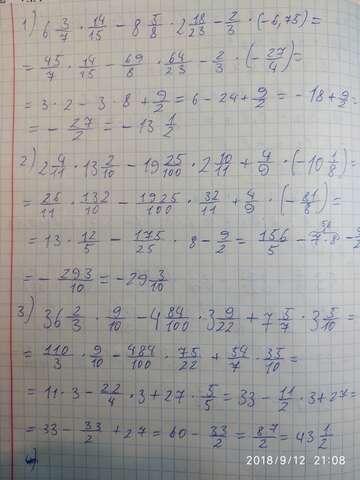 1) 6 3/7 · 14/15 − 8 5/8 · 2 18/23 − 2/3 · (−6,75) =
= 45/7 · 14/15 − 69/8 · 64/23 − 2/3 · (−27/4) =
= 3 · 2 − 3 · 8 + 9/2 = 6 − 24 + 9/2 = −18 + 9/2 =
= −27/2 = −13 1/2
2) 2 4/11 · 13 2/10 − 19 25/100 · 2 10/11 + 4/9 · (−10 1/8) =
= 26/11 · 132/10 − 1925/100 · 32/11 + 4/9 · (−81/8) =
= 13 · 12/5 − 175/25 · 8 − 9/2 = 156/5 − 7 · 8 −
= −293/10 = −29 3/10
3) 36 2/3 · 9/10 − 4 84/100 · 3 9/22 + 7 5/7 · 3 5/10 =
= 110/3 · 9/10 − 484/100 · 75/22 + 54/7 · 35/10 =
= 11 · 3 − 22/4 · 3 + 27 · 5/5 = 33 − 11/2 · 3 + 27 =
= 33 − 33/2 + 27 = 60 − 33/2 = 87/2 = 43 1/2
2018/9/12 21:08